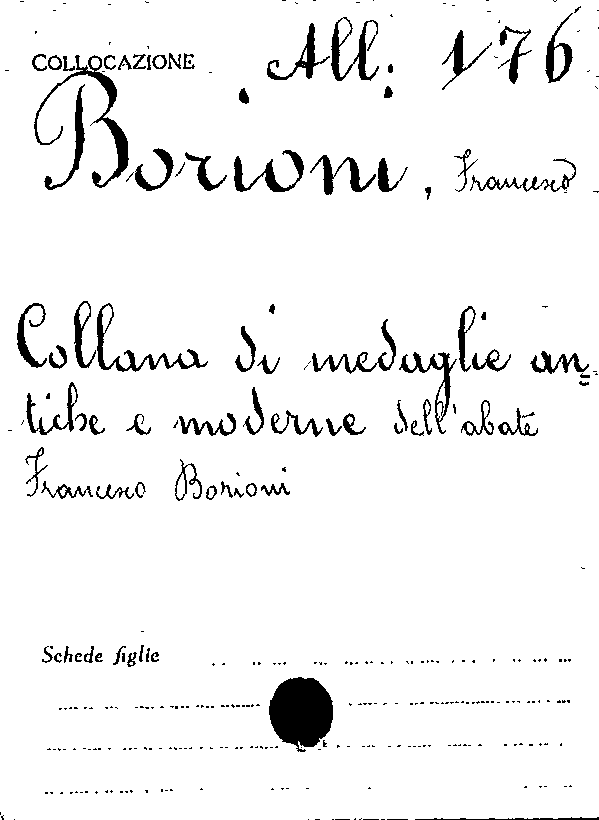 COLLOCAZIONE All: 176
Borioni, Francesco
Collana di medaglie an=
tiche e moderne dell'abate
Francesco Borioni
Schede figlie